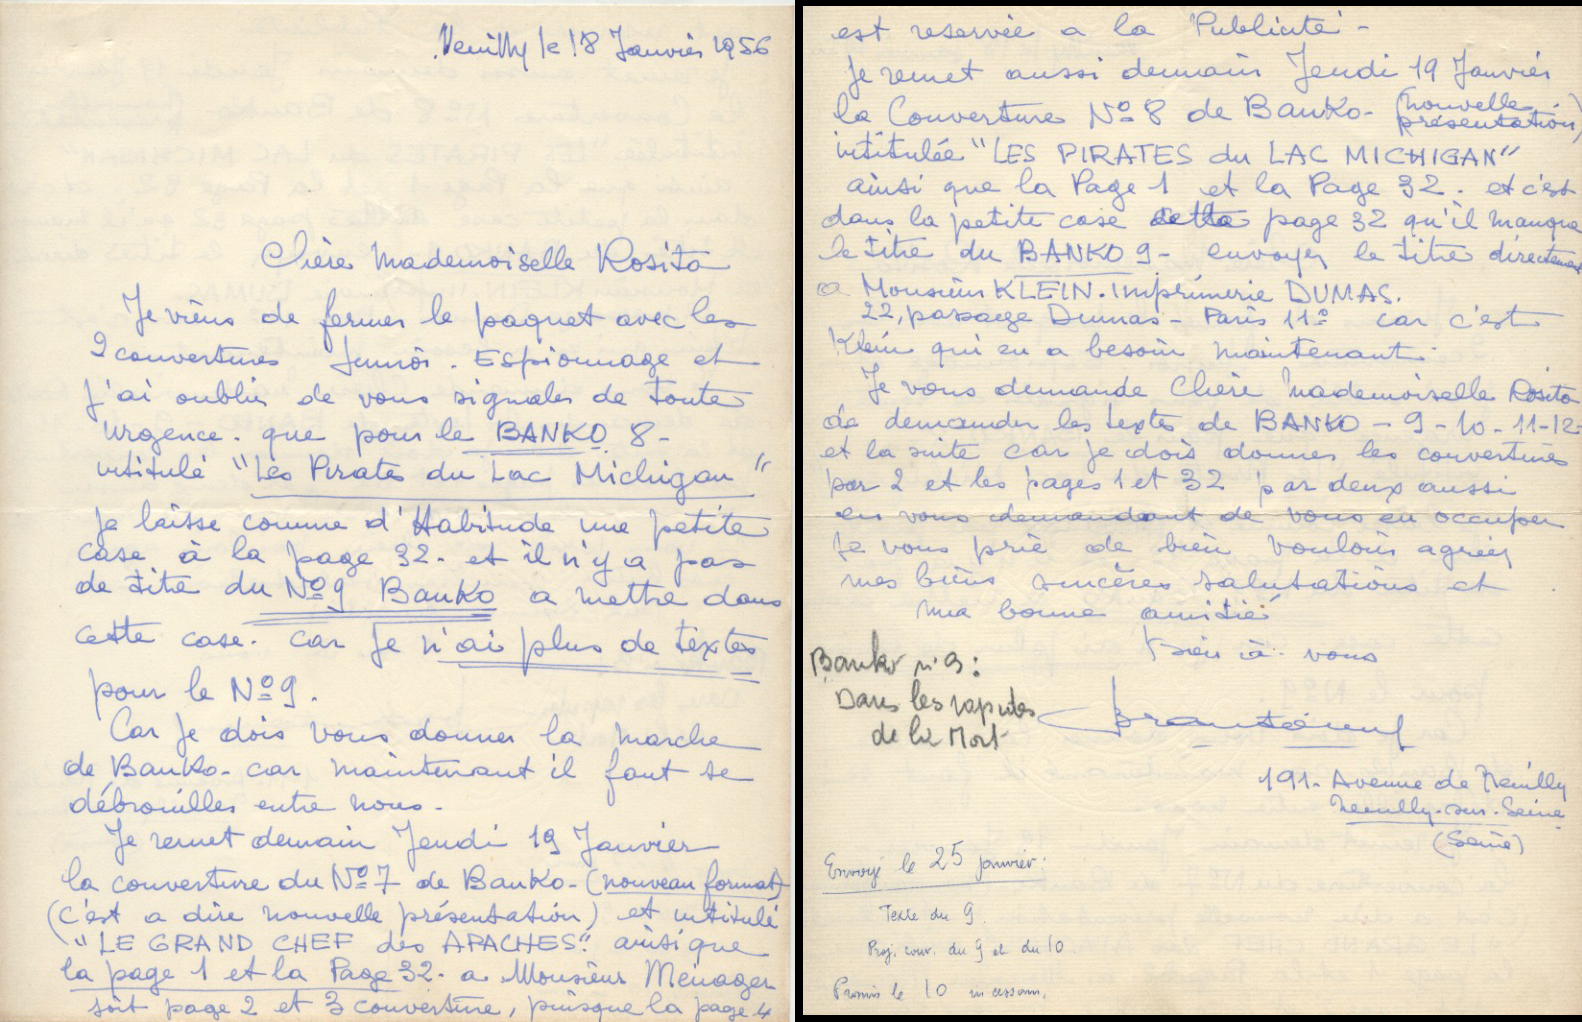 Neuilly le 18 Janvier 1956
Chère Mademoiselle Rosita
Je viens de fermer le paquet avec les
2 couvertures Junior. Espionnage et
j'ai oublié de vous signaler de toute
urgence. que pour le BANKO 8-
intitulé "Les Pirates du Lac Michigan"
je laisse comme d'Habitude une petite
case à la page 32. et il n'y a pas
de titre du No 9 Banko a mettre dans
cette case. car je n'ai plus de textes
pour le No 9.
Car je dois vous donner la marche
de Banko. car maintenant il faut se
débrouiller entre nous.
Je remet demain Jeudi 19 Janvier
la couverture du No 7 de Banko- (nouveau format)
(c'est a dire nouvelle présentation) et intitulé
"LE GRAND CHEF des APACHES" ainsi que
la page 1 et la Page 32. a Monsieur Ménager
soit page 2 et 3 couverture, puisque la page 4
est reservée a la Publicité -
Je remet aussi demain Jeudi 19 Janvier
la Couverture No 8 de Banko- (nouvelle
présentation)
intitulée "LES PIRATES du LAC MICHIGAN"
ainsi que la Page 1 et la Page 32. et c'est
dans la petite case de la page 32 qu'il manque
le titre du BANKO 9- envoyer le titre directement
a Monsieur KLEIN. Imprimerie DUMAS.
22, passage Dumas - Paris 11e car c'est
Klein qui en a besoin maintenant.
Je vous demande Chère Mademoiselle Rosita
de demander les textes de BANKO - 9 - 10 - 11 - 12 -
et la suite car je dois donner les couvertures
par 2 et les pages 1 et 32 par deux aussi
en vous demandant de vous en occuper
Je vous prie de bien vouloir agréer
mes biens sincères salutations et
ma bonne amitié
Bien à vous
Banko n° 9:
Dans les rapides
de la Mort
Brantonne
191. Avenue de Neuilly
Neuilly-sur-Seine
(Seine)
Envoyé le 25 janvier.
Texte du 9.
Proj. couv. du 9 et du 10
Promis le 10